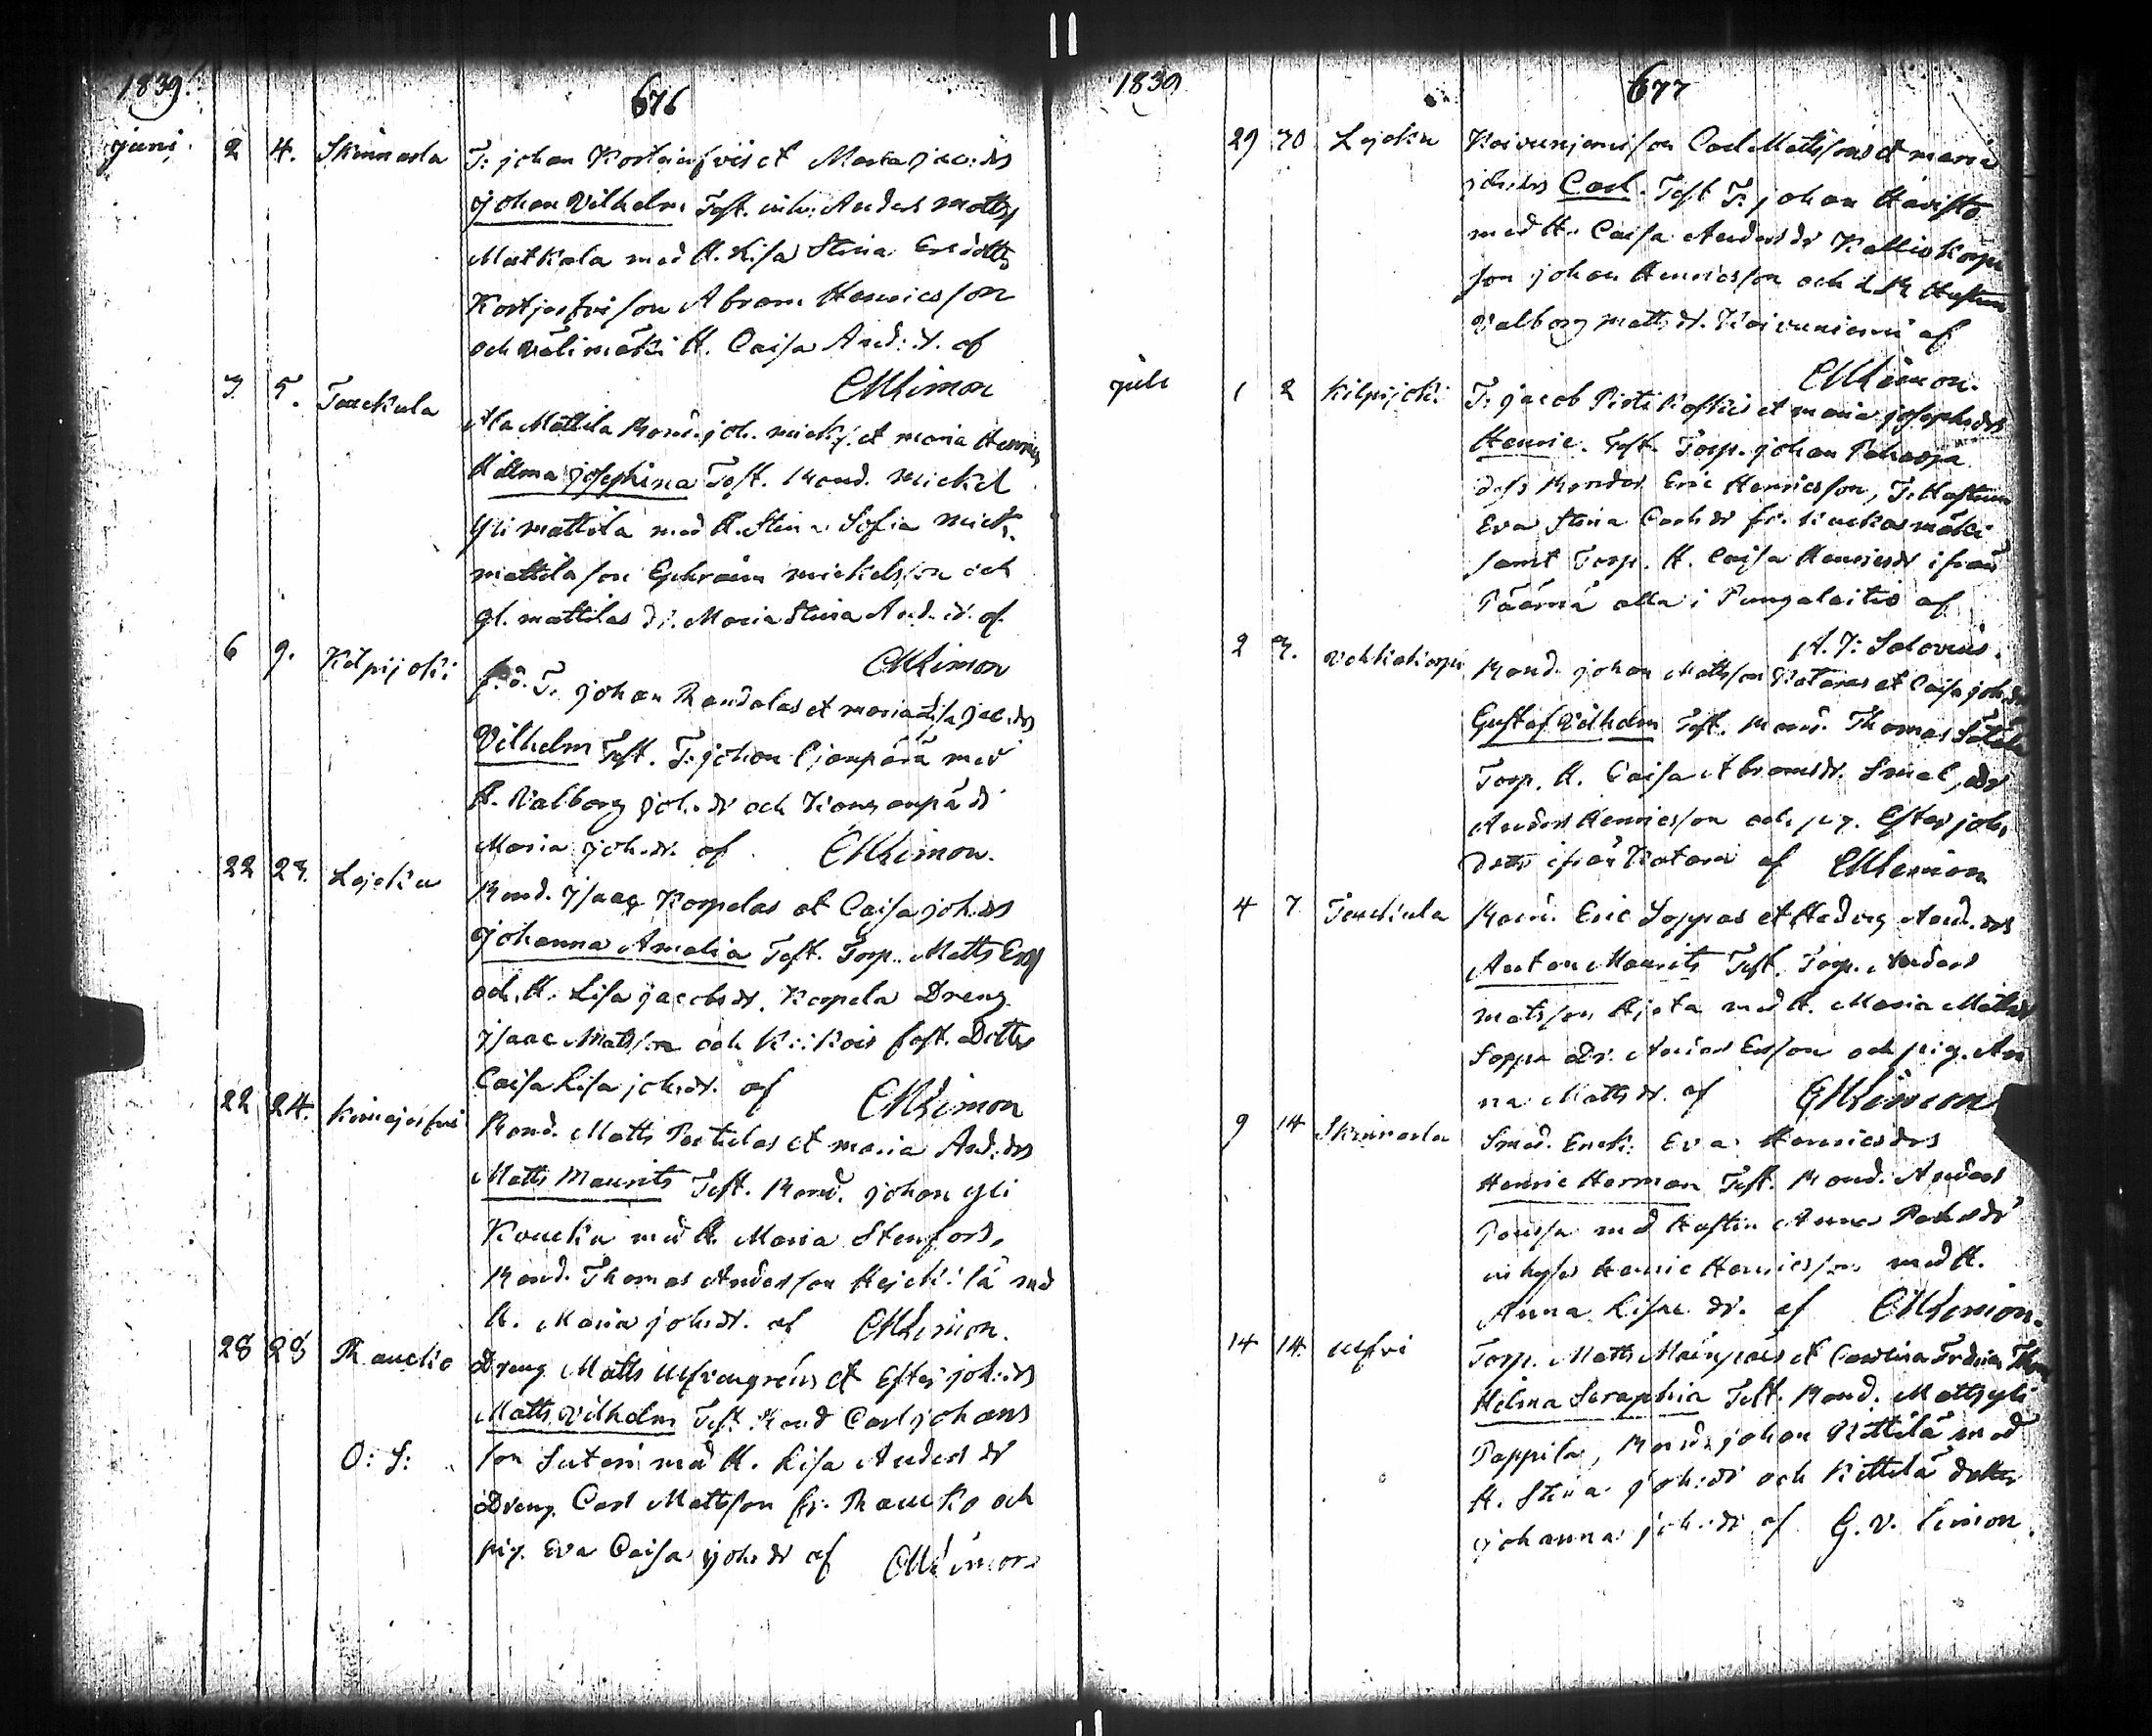 1839.
676
juni. 2 4. Skinnarla T: johan Kortjärfvis et Maria jac:ds
johan Vilhelm Test. inh. Anders matts
Matkala med H. Lisa Stina Ersdotts
Kortjerfvi son Abram Henricsson
och Välimäki H. Caisa And:d. af
CMLimon
3 5. Tauckula Ala Mattila Bond. joh. mick. et maria Henrics
Hilma josephina Test. Bond. Mickel
Yli mattila med H. Stina Sofia mick.
mattila son Ephraim mickelsson och
gl. mattilas dr. Maria Stina And. d. af
CMLimon
6 9. Kilpijoki f.d. T. johan Randalas et maria Lisa jac.ds
Vilhelm Test. T. johan med
H. Valborg joh.dr och dr
Maria joh.dr. af CMLimon.
22 23. Lojoku Bond. jsaac Korpelas et Caisa joh.ds
johanna Amalia Test. Torp. Matts Ers
och H. Lisa jacobsdr. Korpela Dreng
jsaac Matsson och fost. Dotter
Caisa Lisa joh.dr. af CMLimon
22 24. Kimajerfvi Bond. Matts Pertulas et maria And:ds
Matts Maurits Test. Bond. johan yli
Knucku med H. Maria Stenfors,
Bond. Thomas Andersson Hejckilä med
H. Maria joh.dr. af CMLimon.
28 28 Rauckio Dreng Matts Ulfvengréns et Ester joh:ds
Matts Vilhelm Test. Bond Carl johans
O: S: son Suteri med H. Lisa Anders dr
Dreng Carl Mattsson fr. Raucko och
pig. Eva Caisa joh.dr af CMLimon
1839
677
29 30 Lojoku Koivuniemi son Carl Matssons et maria
johs.ds Carl. Test T. johan Havisto
med H. Caisa Anders dr Kalliokorpi
son johan Henricsson och Hustrun
Valborg matts dr. Koivuniemi af
CMLimon.
juli 1 2 Kilpijoki T. jacob Ristikoskis et maria josephsdrs
Henric. Test. Torp. johan Pohaoja
dess Broder Eric Henricsson, T. Hustrun
Eva Stina Carlsdr fr.
samt Torp. H. Caisa Henricsdr ifrån
Päärnä alla i Pungalaitio af
A. J: Salovius.
2 3. Vahkakorpi Bond. johan Mattsson Kataras et Caisa joh.ds
Gustaf Vilhelm Test. Bond. Thomas
Torp. H. Caisa Abramsdr. Smal
Anders Henricsson och pig. Ester joh.
dotter ifrån Katara af CMLimon
4 7 Tauckula Bond. Eric Soppas et Hedvig And.ds
Anton Maurits Test. Torp. Anders
Matsson Hjeta med H. Maria Matsdr
Soppa Anders Ersson och pig. An
na Matts dr. af CMLimon
9 14 Skinnarla Smed. Enck: Eva Henricsdrs
Henric Herman Test. Bond. Anders
Paussa med hustru Anna
inhyses Henric Henricsson med H.
Anna Lisa dr. af CMLimon.
14 14 ulfvi Torp. Matts Mäenpääs et Carolina Fredrica Thom
Hilma Seraphia Test. Bond. Matts yli
Pappila, Bond. johan Kittilä med
H. Stina joh:dr och Kittilä dotter
johanna joh:dr af G. V. Limon.